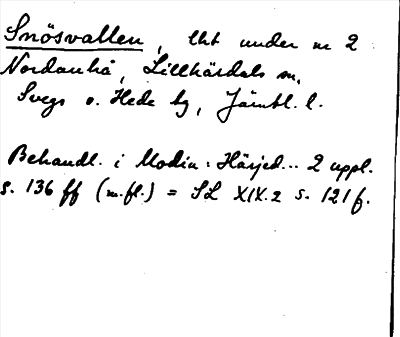 Snösvallen, lht under nr 2
Nordanhå, Lillhärdals sn,
Svegs o. Hede tg, Jämtl. l.
Behandl. i Modin: Härjed... 2 uppl.
s. 136 ff (m.fl.) = SL XIX.2 s. 121 f.